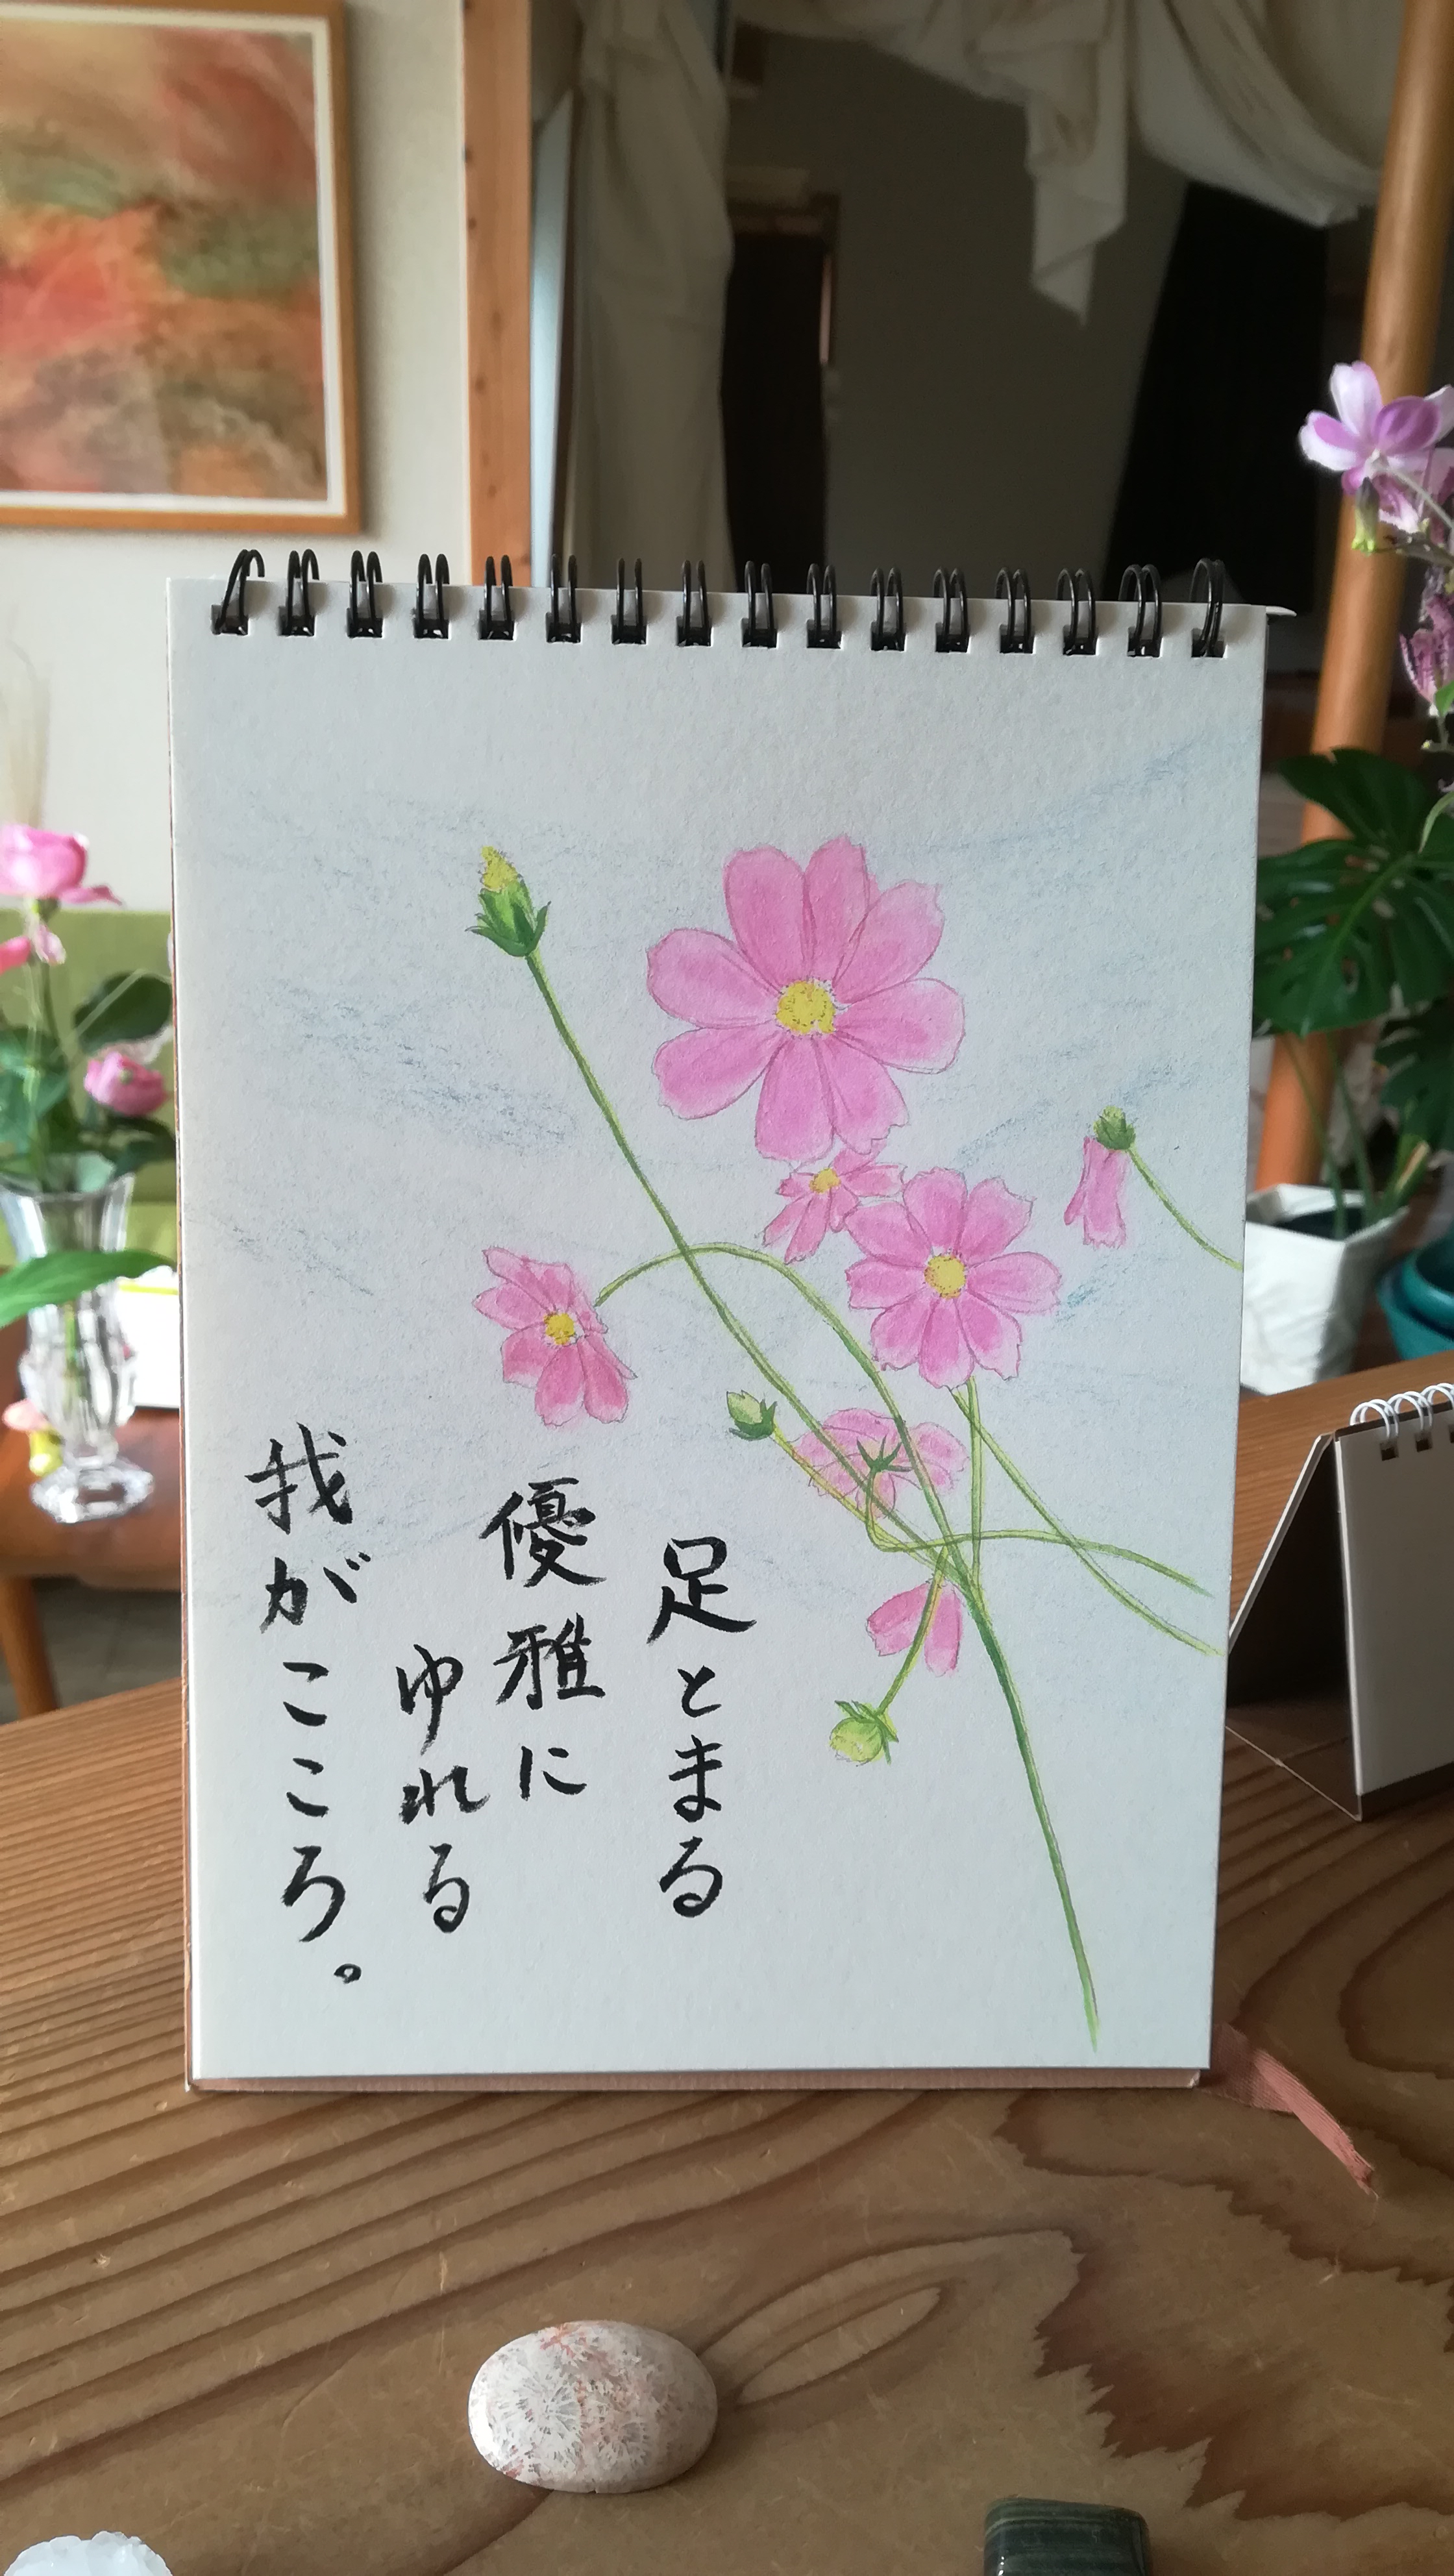 足とまる
優雅に
ゆれる
我がこころ。